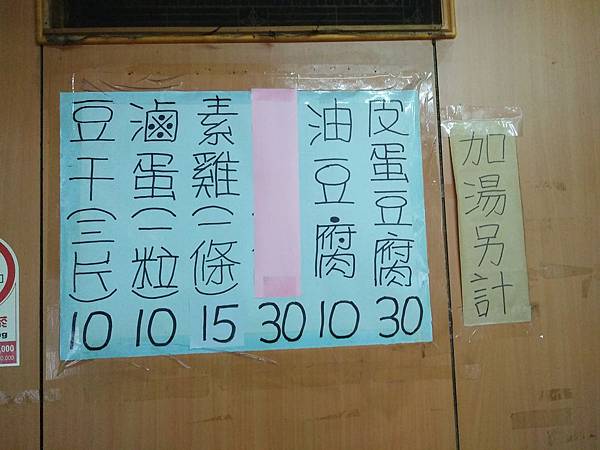 皮蛋豆腐30
油豆腐10
30
素雞(一條)15
滷蛋(一粒)10
豆干(三片)10
加湯另計